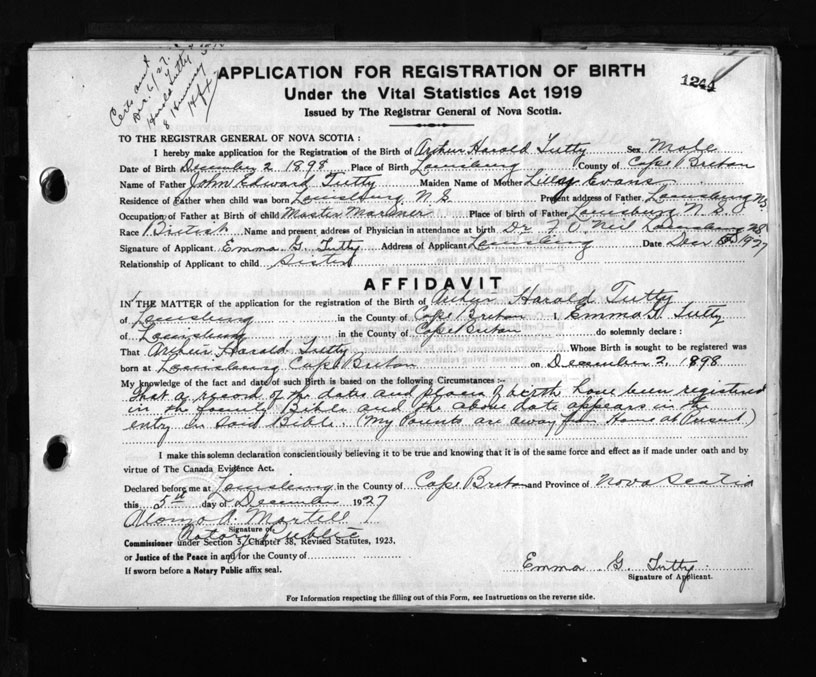 Certs and
Dec 6/27.
Harold Tutty
8
Hfx
APPLICATION FOR REGISTRATION OF BIRTH
1244
Under the Vital Statistics Act 1919
Issued by The Registrar General of Nova Scotia.
TO THE REGISTRAR GENERAL OF NOVA SCOTIA :
I hereby make application for the Registration of the Birth of Arthur Harold Tutty Sex Male
Date of Birth December 2 1898 Place of Birth Louisburg County of Cape Breton
Name of Father John Edward Tutty Maiden Name of Mother Evans
Residence of Father when child was born Louisburg N S Present address of Father, Louisburg NS.
Occupation of Father at Birth of child Master Mariner Place of birth of Father Louisburg N. S.
Race British Name and present address of Physician in attendance at birth Dr. F. O. Neil Louisburg NS
Signature of Applicant Emma G. Tutty Address of Applicant Louisburg Date 1927
Relationship of Applicant to child Sister
AFFIDAVIT
IN THE MATTER of the application for the registration of the Birth of Arthur Harold Tutty
of Louisburg in the County of Cape Breton I, Emma G. Tutty
of Louisburg in the County of Cape Breton do solemnly declare :
That Arthur Harold Tutty Whose Birth is sought to be registered was
born at Louisburg Cape Breton on December 2, 1898
My knowledge of the fact and date of such Birth is based on the following Circumstances :-
That a record of the dates and places of birth have been registered
in the family Bible and the above date appears in the
entry in said Bible. (My Parents are away from Home at Present)
I make this solemn declaration conscientiously believing it to be true and knowing that it is of the same force and effect as if made under oath and by
virtue of The Canada Evidence Act.
Declared before me at Louisburg in the County of Cape Breton and Province of Nova Scotia
this 5th day of December 1927
Alonzo A. Martell
Signature of
Notary Public
Commissioner under Section 5, Chapter 38, Revised Statutes, 1923.
or Justice of the Peace in and for the County of
If sworn before a Notary Public affix seal.
Emma G. Tutty
Signature of Applicant.
For Information respecting the filling out of this Form, see Instructions on the reverse side.